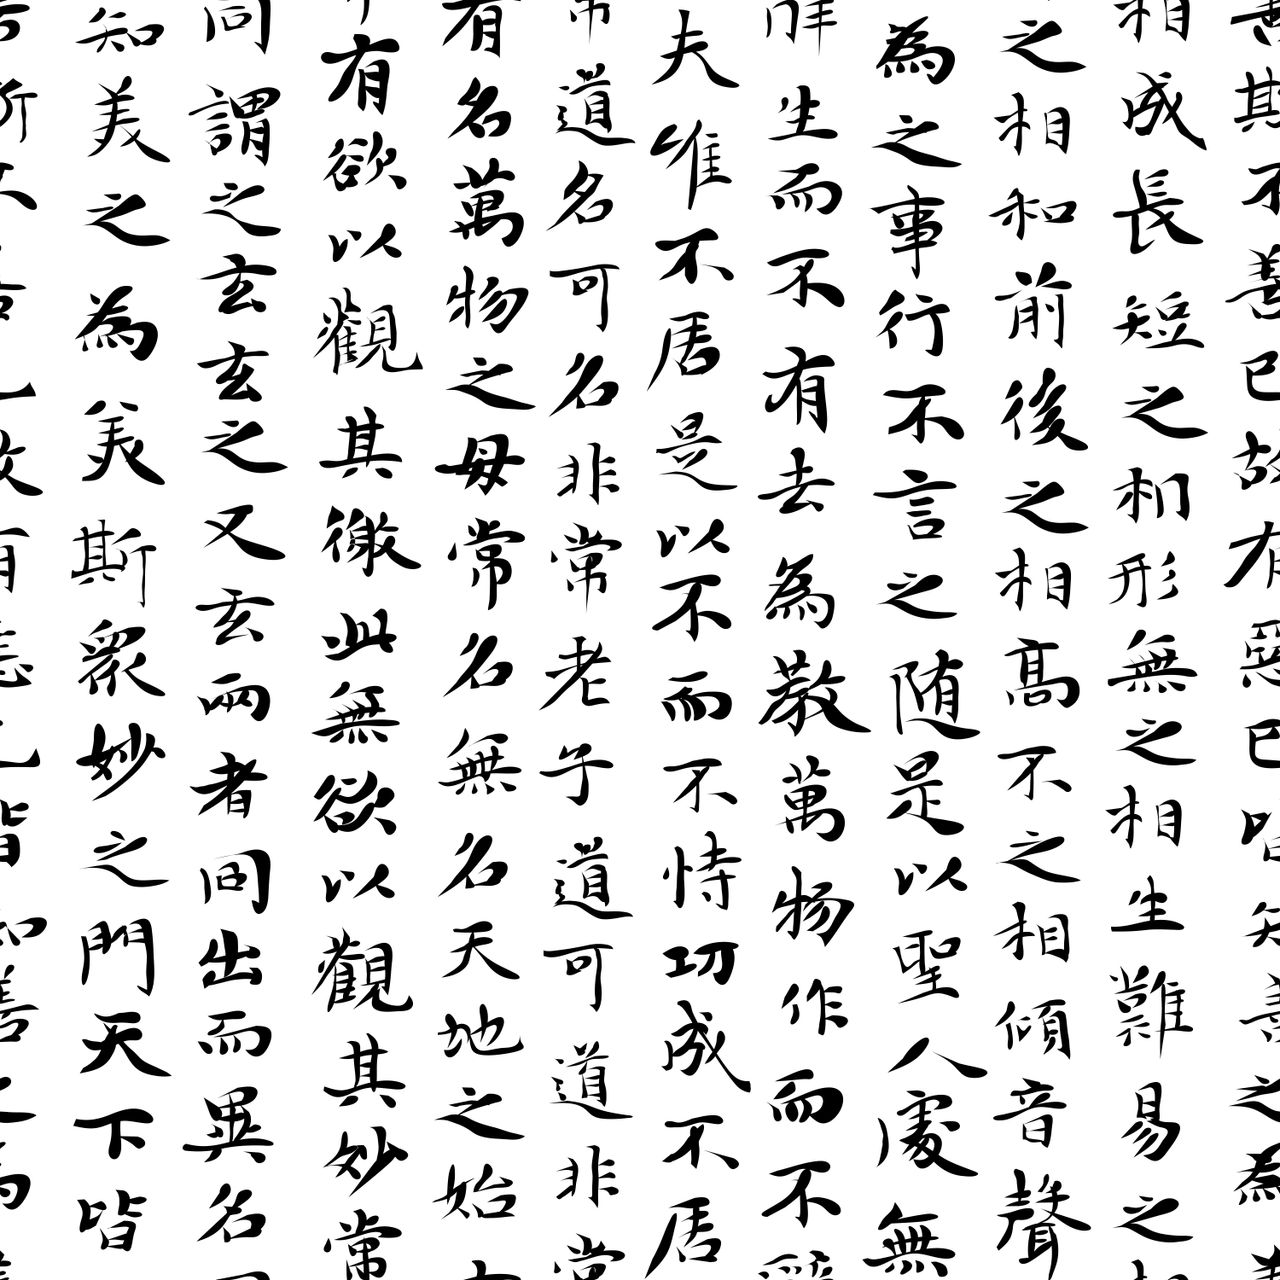 斯不善已故有惡已皆知善之為
相成長短之相形無之相生難易之
之相和前後之相高不之相傾音聲
為之事行不言之随是以聖人處無
生而不有去為教萬物作而不
夫唯不居是以不而不恃功成不居
常道名可名非常老子道可道非常
有名萬物之母常名名無名天地之始
有欲以觀其徼此無欲以觀其妙常
同謂之玄玄之又玄兩者同出而異名
知美之為美斯衆妙之門天下皆